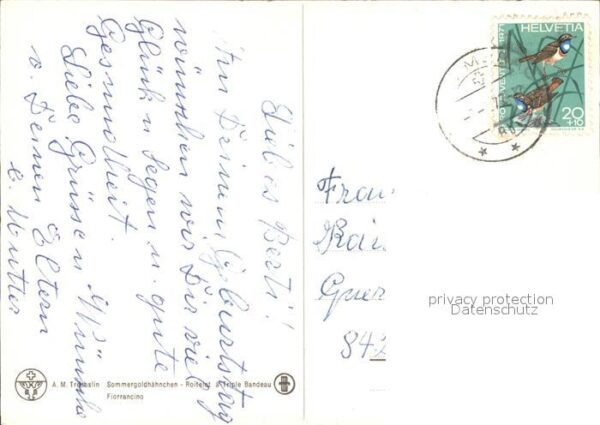 Liebes Berti!
An Deinem Geburtstag
wünschen wir Dir viel
Glück u Segen u. gute
Gesundheit.
Liebe Grüsse u Wünsche
v. Deinen Eltern
HELVETIA
1971
20
+10
Frau
Guer
842
privacy protection
Datenschutz
A. M. Trechslin Sommergoldhähnchen - Roitelet à Triple Bandeau
Fiorrancino